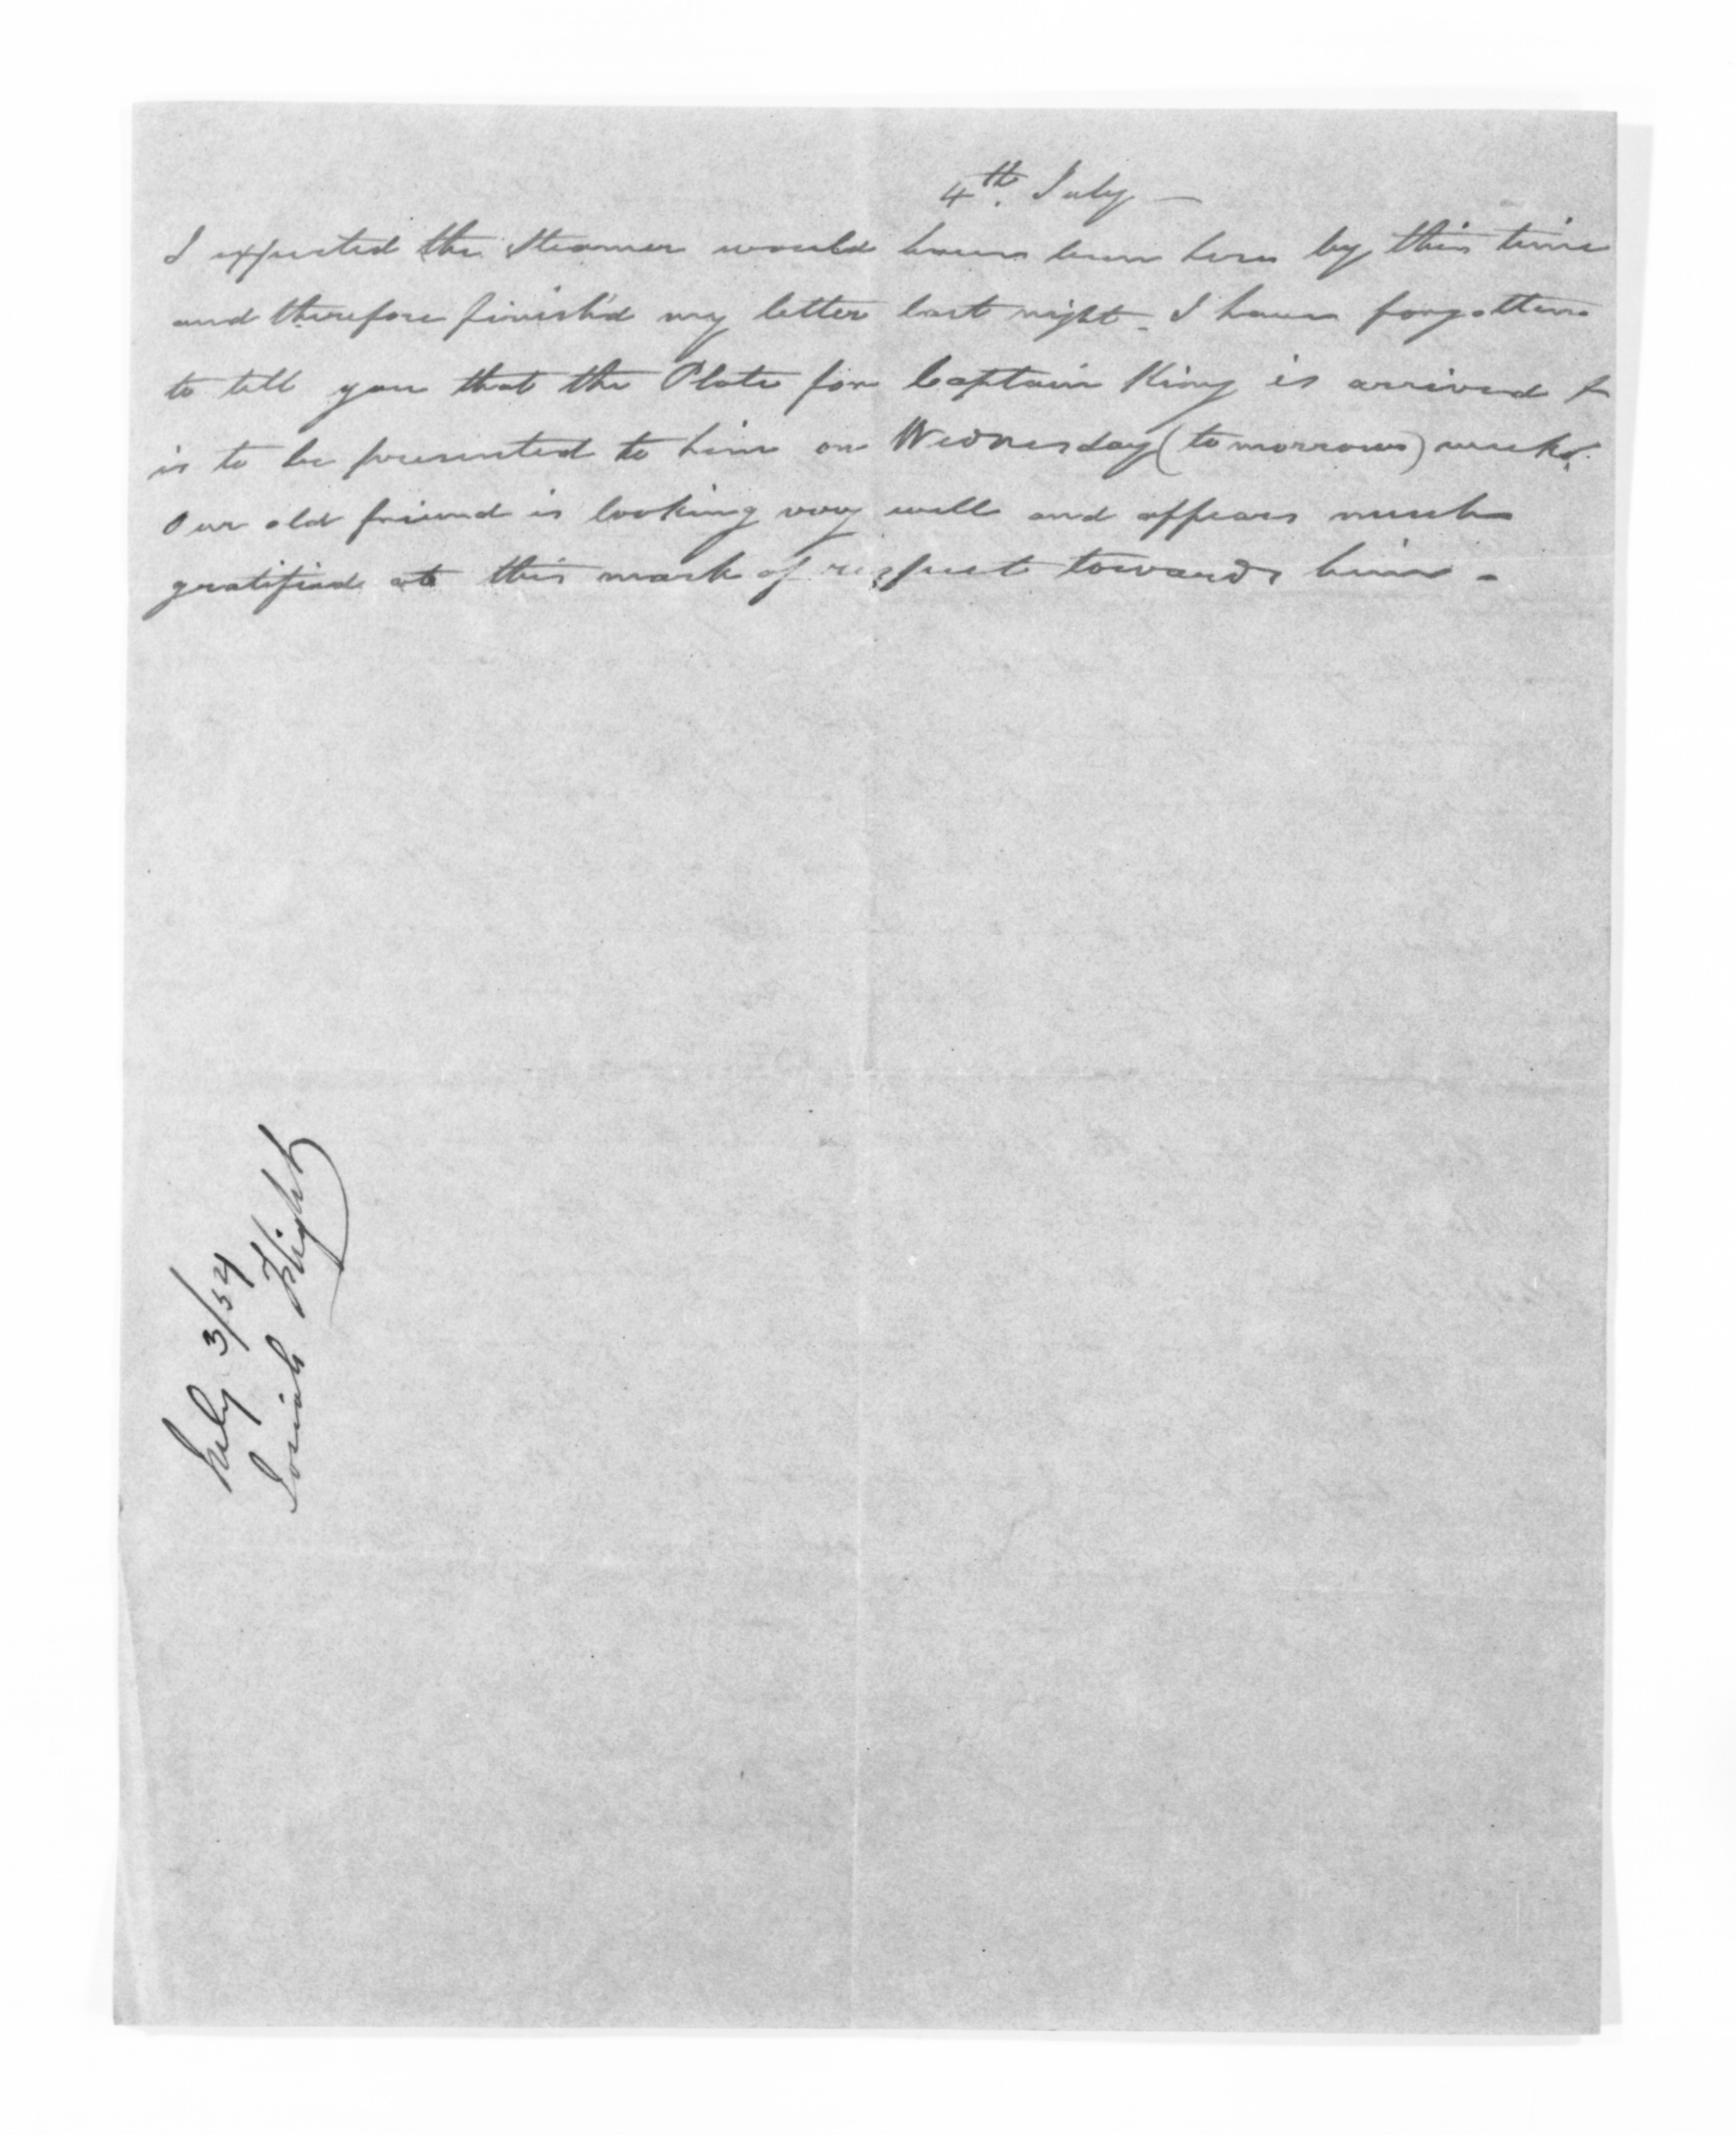 4th. July —
I expected the Steamer would have been here by this time
and therefore finish'd my letter last night. I have forgotten
to tell you that the Plate for Captain King is arrived &
is to be presented to him on Wednesday (tomorrow) week.
Our old friend is looking very well and appears much
gratified at this mark of respect towards him -
July 3/54
Josiah Flight